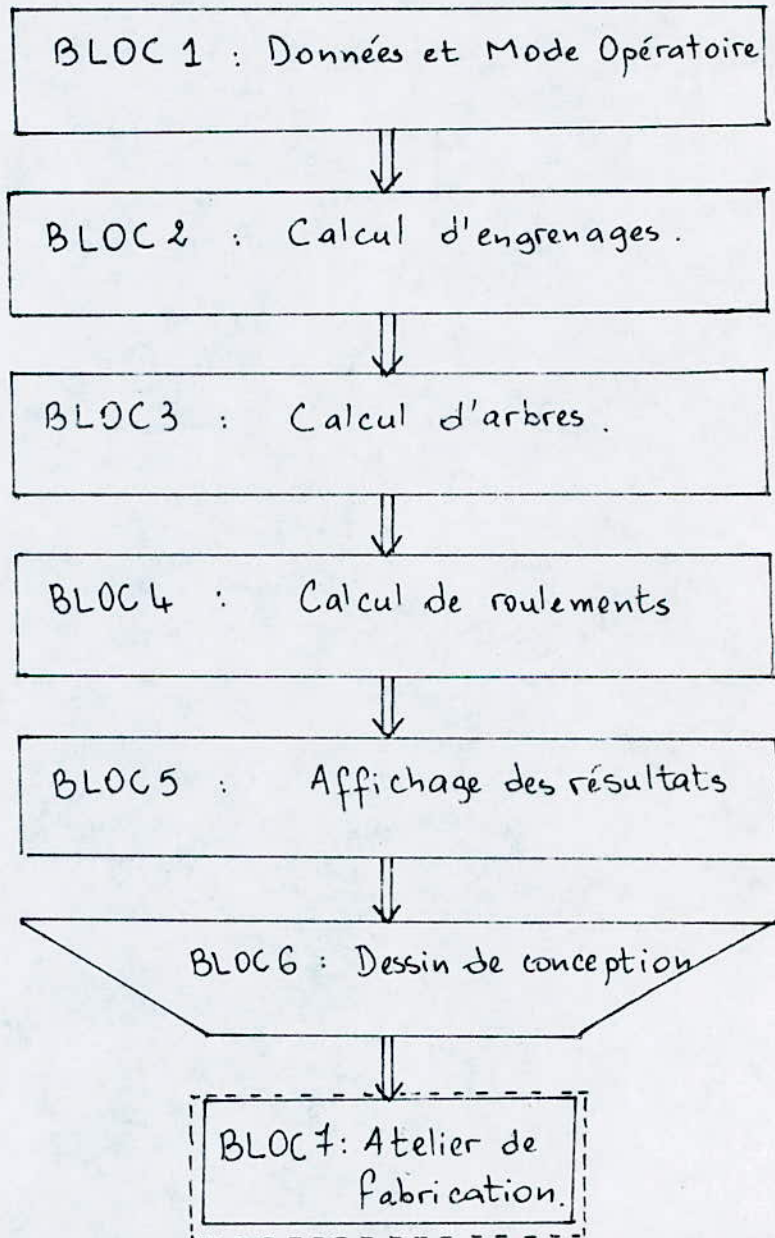 BLOC 1 : Données et Mode Opératoire
BLOC 2 : Calcul d'engrenages.
BLOC 3 : Calcul d'arbres.
BLOC 4 : Calcul de roulements
BLOC 5 : Affichage des résultats
BLOC 6 : Dessin de conception
BLOC 7 : Atelier de
fabrication.